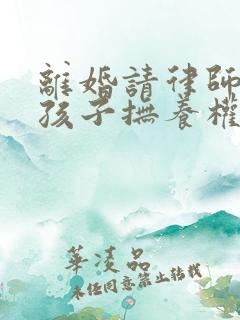 離婚請律師
孩子撫養權
華凌品
未任同意禁止轉載